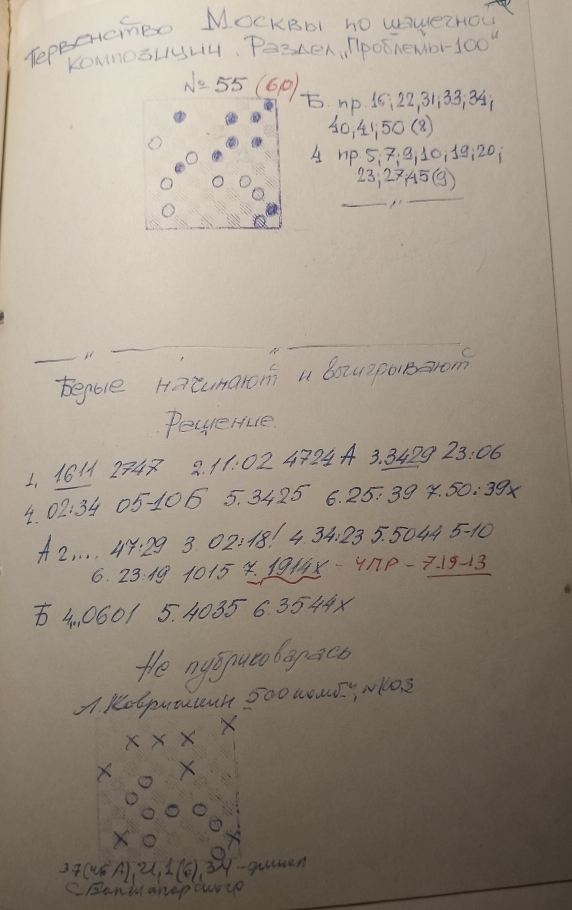 Первенство Москвы по шашечной
композиции. Раздел „Проблемы-100"
№ 55 (6,0)
Б. пр. 16; 22, 31; 33; 34;
40, 41; 50 (8)
Ч пр 5, 7; 9; 10, 19; 20;
23; 27, 45 (9)
Белые начинают и выигрывают
Решение.
1. 1611 2747 2. 11:02 4724 А 3. 3429 23:06
4. 02:34 05-10 Б 5. 3425 6. 25:39 7. 50:39х
А 2.... 47:29 3. 02:18! 4. 34:23 5. 5044 5-10
6. 23:19 1015 7. 1914х - ЧПР - 7.19-13
Б 4... 0601 5. 4035 6. 3544х
Не публиковалась
500 комб.,
С